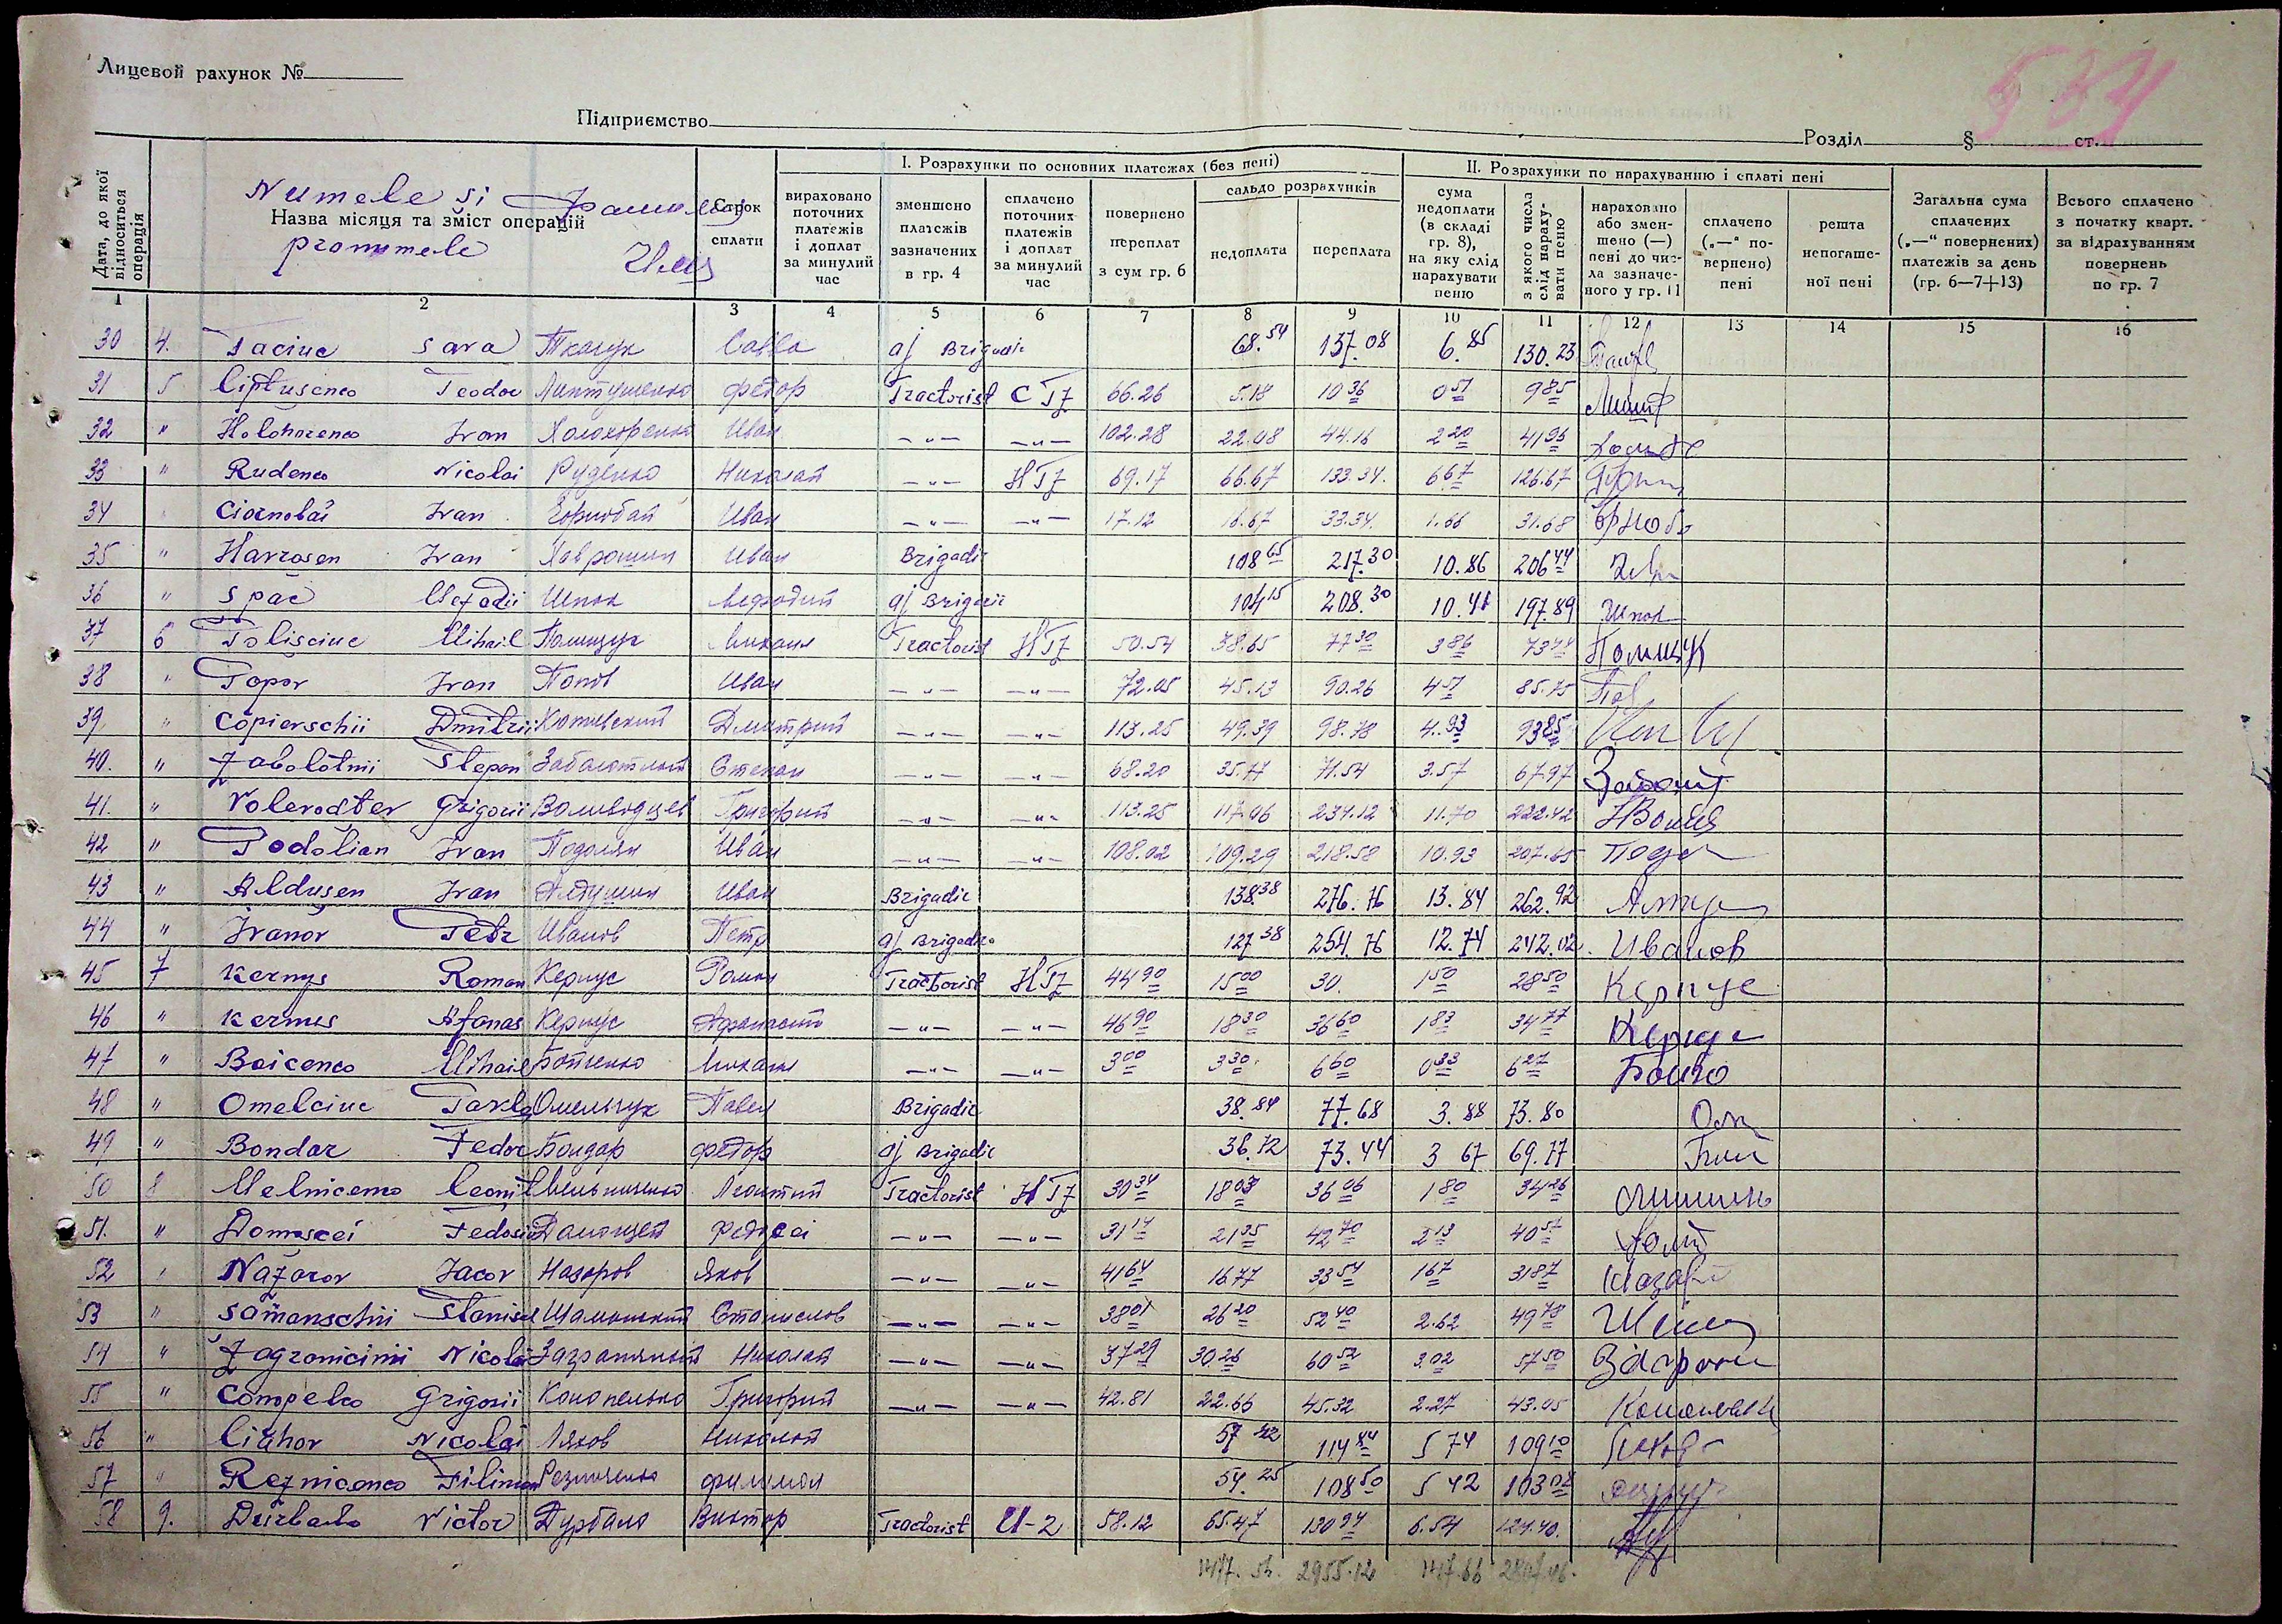 Лицевой рахунок №
534
Підприємство
Розділ § ст.
Дата, до якої відноситься операція
Numele si Фамилия
Назва місяця та зміст операцій
pronumele Имя
Строк сплати
І. Розрахунки по основних платежах (без пені)
вираховано поточних платежів і доплат за минулий час
зменшено платежів зазначених в гр. 4
сплачено поточних платежів і доплат за минулий час
повернено переплат з сум гр. 6
сальдо розрахунків
недоплата
переплата
ІІ. Розрахунки по нарахуванню і сплаті пені
сума недоплати (в складі гр. 8), на яку слід нарахувати пеню
з якого числа слід нараху-вати пеню
нараховано або змен-шено (—) пені до чис-ла зазначе-ного у гр. 11
сплачено („—“ по-вернено) пені
решта непогаше-ної пені
Загальна сума сплачених („—“ повернених) платежів за день (гр. 6—7+13)
Всього сплачено з початку кварт. за відрахуванням повернень по гр. 7
1 2 3 4 5 6 7 8 9 10 11 12 13 14 15 16
30 4. Taciuc Sava Ткачук Савва aj Brigadir 68.54 137.08 6.85 130.23
31 5 Liptusenco Teodor Липтушенко Федор Tractorist СТЗ 66.26 5.18 10 36 0 51 9 85
32 " Holohorenco Ivan Холохоренко Иван —"— —"— 102.28 22.08 44.16 2 20 41 96
33 " Rudenco Nicolai Руденко Николай —"— НТЗ 69.17 66.67 133.34. 6 67 126.67
34 Ciornobai Ivan Чорнобай Иван —"— —"— 17.12 16.67 33.34. 1.66 31.68
35 " Havrosen Ivan Хаврошин Иван Brigadir 108 65 217.30 10.86 206 44
36 " Spac Mefodii Шпак Мефодий aj Brigadir 104 15 208.30 10.41 197.89 Шпак
37 6 Polisciuc Mihail Полищук Михаил Tractorist НТЗ 50.54 38.65 77 30 3 86 73 44 Полищук
38 " Popov Ivan Попов Иван —"— —"— 72.05 45.13 90.26 4 51 85.75
39 " Copievschii Dmitrii Копиевский Дмитрий —"— —"— 113.25 49.39 98.78 4.93 93 85
40. " Zabolotnii Stepan Заболотный Степан —"— —"— 68.20 35.77 71.54 3.57 67.97
41. " Volevodter Grigorii Воливодцев Григорий —"— —"— 113.25 117.06 234.12 11.70 222.42
42 " Podolian Ivan Подолян Иван —"— —"— 108.02 109.29 218.58 10.93 207.65
43 " Aldusen Ivan Алдушин Иван Brigadir 138 38 276.76 13.84 262.92
44 " Ivanov Petr Иванов Петр aj Brigadir 127 38 254.76 12.74 242.02 Иванов
45 7 Kernys Roman Кернус Роман Tractorist НТЗ 44 90 15 00 30. 1 50 28 50 Кернус
46 " Kernus Afanas Кернус Афанасий —"— —"— 46 90 18 30 36 60 1 83 34 77
47 " Boicenco Mihail Бойченко Михаил —"— —"— 3 00 3 30 6 60 0 33 6 27
48 " Omelciuc Pavel Омельчук Павел Brigadir 38.84 77.68 3.88 73.80
49 " Bondar Fedor Бондар Федор aj Brigadir 36.72 73.44 3 67 69.77
50 8 Melnicenco Leontii Мельниченко Леонтий Tractorist НТЗ 30 34 18 03 36 06 1 80 34 26
51. " Domascei Fedosei Федосei —"— —"— 31 14 21 35 42 70 2 13 40 57
52 " Nazarov Iacov Назаров Яков —"— —"— 41 64 16.77 33 54 1 67 31 87
53 " Samanschii Stanisl Шаманский Станислов —"— —"— 38 01 26 20 52 40 2.62 49 78
54 " Zagranicinii Nicolai Заграничный Николай —"— —"— 37 29 30.26 60 52 3.02 57 50
55 " Conopelco Grigorii Конопелько Григорий —"— —"— 42.81 22.66 45.32 2.27 43.05
56 " Liahov Nicolai Ляхов Николай 57 42 114 84 5 74 109 10
57 " Reznicenco Filimon Резниченко Филимон 54.25 108 50 5 42 103 08
58 9. Durbalo Victor Дурбало Виктор Tractorist U-2 58.12 65.47 130 94 6.54 124.40.
2955.12